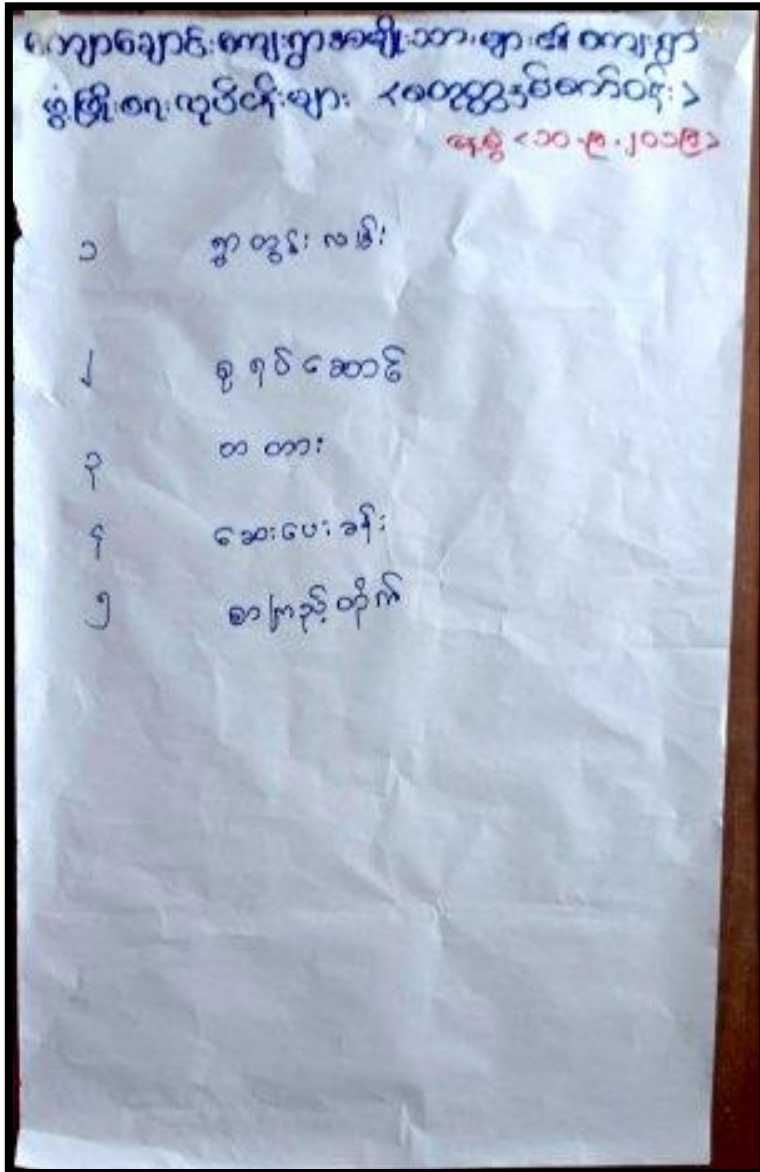 ကျောချောင်းကျေးရွာအမျိုးသားများ၏ ကျေးရွာ
ဖွံ့ဖြိုးရေးလုပ်ငန်းများ <စတုတ္ထနှစ်စက်ဝန်း>
နေ့စွဲ <၁၀.၉.၂၀၁၉>
၁ ရွာတွန်းလမ်း
၂ စုရပ်ဆောင်
၃ တံတား
၄ ဆေးပေးခန်း
၅ စာကြည့်တိုက်